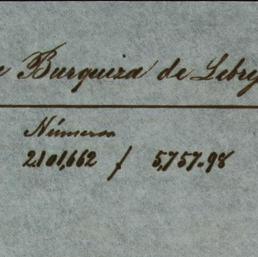 e Burqueza de Lebrij
Números
2.101,662 f 5,757.98